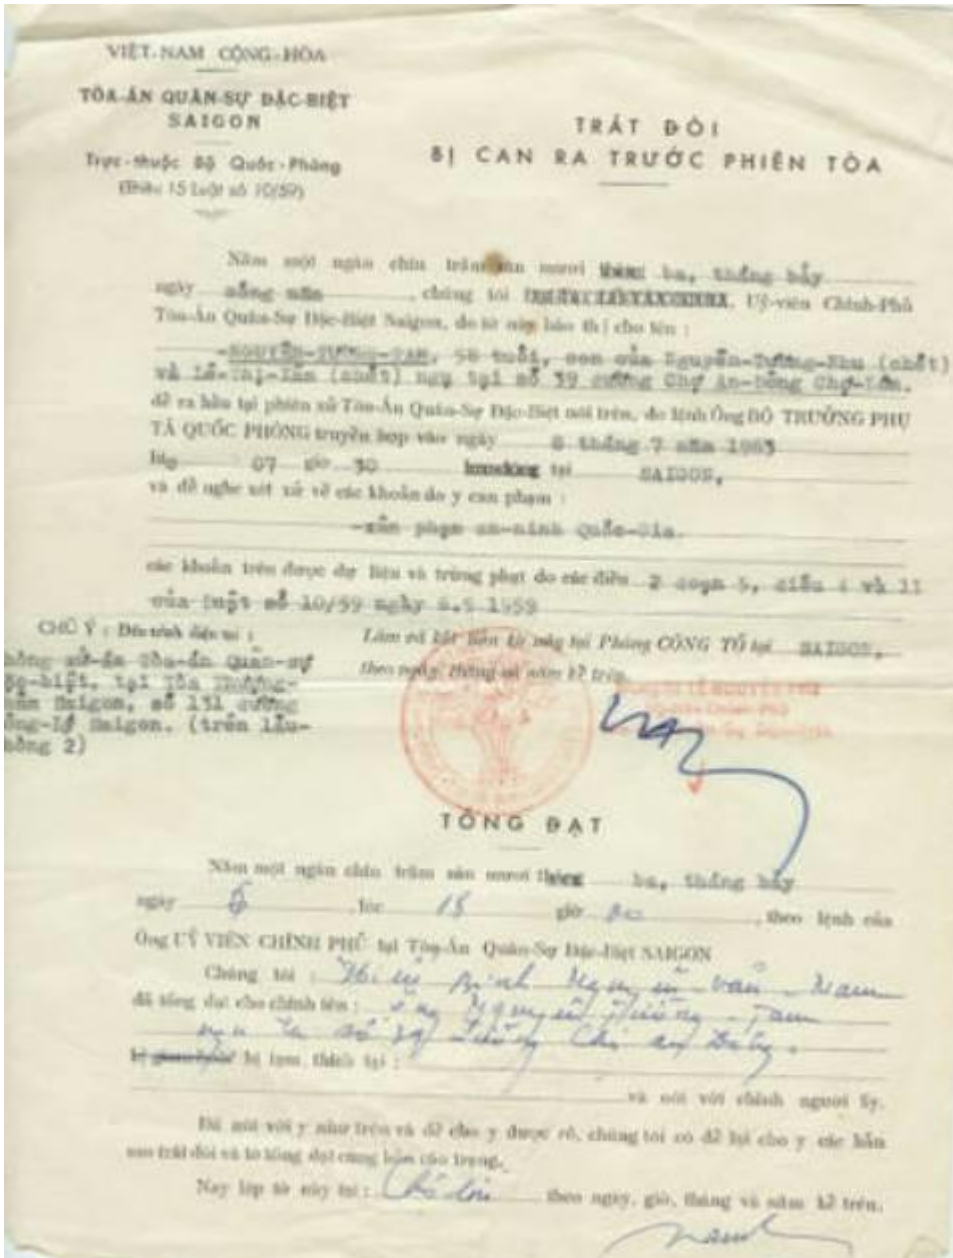 VIỆT-NAM CỘNG-HÒA
TÒA-ÁN QUÂN-SỰ ĐẶC-BIỆT
SAIGON
Trực-thuộc Bộ Quốc-Phòng
(Điều 15 Luật số 10/59)
TRÁT ĐÒI
BỊ CAN RA TRƯỚC PHIÊN TÒA
Năm một ngàn chín trăm sáu mươi ba, tháng bẩy
ngày mồng năm, chúng tôi Uỷ-viên Chính-Phủ
Tòa-Án Quân-Sự Đặc-Biệt Saigon, do tờ này báo thị cho tên :
-NGUYỄN-TƯỜNG-TAM, 58 tuổi, con của Nguyễn-Tường-Nhu (chết)
và Lê-Thị-Sâm (chết) ngụ tại số 39 đường Chợ An-Đông Chợ-Lớn.
để ra hầu tại phiên xử Tòa-Án Quân-Sự Đặc-Biệt nói trên, do lệnh Ông BỘ TRƯỞNG PHỤ
TÁ QUỐC PHÒNG truyền họp vào ngày 8 tháng 7 năm 1963
hồi 07 giờ 30 tại SAIGON,
và để nghe xét xử về các khoản do y can phạm :
-xâm phạm an-ninh Quốc-Gia.
các khoản trên được dự liệu và trừng phạt do các điều 2 đoạn 5, điều 4 và 11
của Luật số 10/59 ngày 6.5 1959
CHÚ Ý : Đến trình diện tại :
Phòng xử-án Tòa-án Quân-sự
Đặc-biệt, tại Tòa Thượng-
thẩm Saigon, số 131 đường
Công-Lý Saigon. (trên lầu-
phòng 2)
Làm và kết liễu tờ này tại Phòng CÔNG TỐ tại SAIGON,
theo ngày, tháng và năm kể trên.
TỐNG ĐẠT
Năm một ngàn chín trăm sáu mươi ba, tháng bẩy
ngày 6, lúc 15 giờ 00, theo lệnh của
Ông UỶ VIÊN CHÍNH PHỦ tại Tòa-Án Quân-Sự Đặc-Biệt SAIGON
Chúng tôi : Nguyễn văn Nam
đã tống đạt cho chính tên : ông Nguyễn Tường Tam
đường Chợ An Đông.
bị tạm thích tại :
và nói với chính người ấy.
Đã nói với y như trên và để cho y được rõ, chúng tôi có để lại cho y các bản
sao trát đòi và tờ tống đạt cùng bản cáo trạng.
Nay lập tờ này tại : Chợ lớn theo ngày, giờ, tháng và năm kể trên.